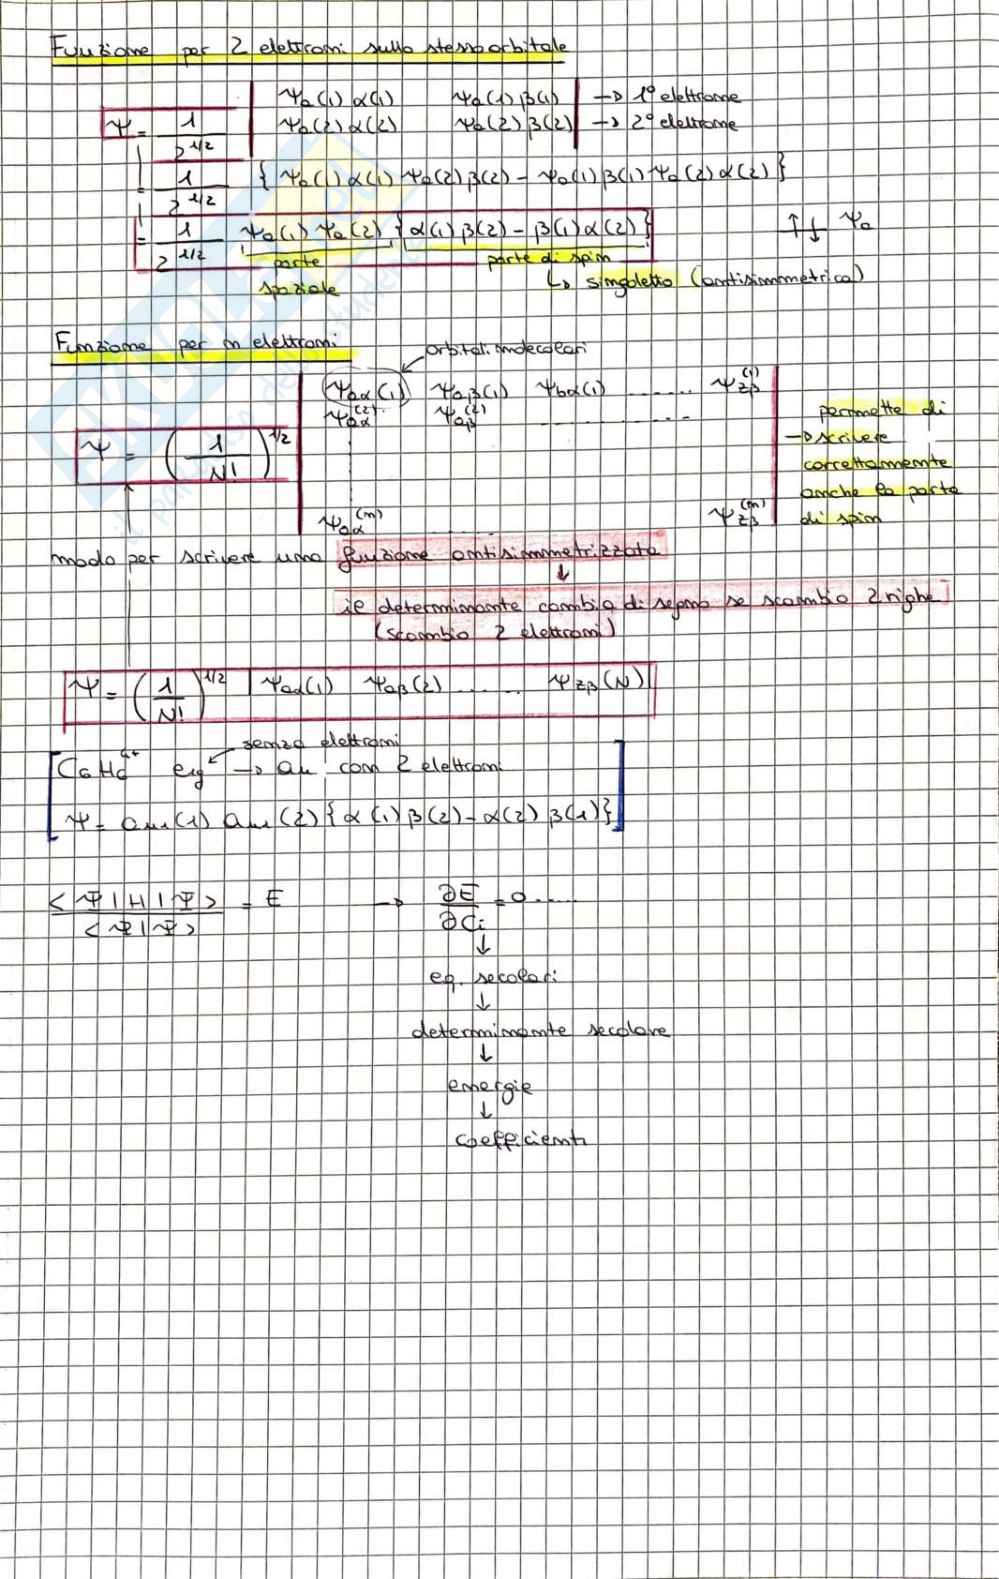 Funzione per 2 elettroni sullo stesso orbitale
Ψ = 1/2^1/2 | Ψa(1)α(1) Ψa(1)β(1) | → 1° elettrone
| Ψa(2)α(2) Ψa(2)β(2) | → 2° elettrone
= 1/2^1/2 { Ψa(1)α(1) Ψa(2)β(2) - Ψa(1)β(1) Ψa(2)α(2) }
= 1/2^1/2 Ψa(1) Ψa(2) { α(1)β(2) - β(1)α(2) } ↑↓ Ψa
parte spaziale
parte di spin
↳ singoletto (antisimmetrica)
Funzione per n elettroni
orbitali molecolari
Ψaα(1) Ψaβ(1) Ψbα(1) ...... Ψzβ(1)
Ψaα(2) Ψaβ(2) ..........
Ψ = (1/N!)^1/2
Ψaα(n) Ψzβ(n)
→ permette di scrivere correttamente anche la parte di spin
modo per scrivere una funzione antisimmetrizzata
↓
il determinante cambia di segno se scambio 2 righe
(scambio 2 elettroni)
Ψ = (1/N!)^1/2 | Ψaα(1) Ψaβ(2) ........ Ψzβ(N) |
senza elettroni
C6H6^4+ e1g → a2u con 2 elettroni
Ψ = a2u(1) a2u(2) { α(1)β(2) - α(2)β(1) }
<Ψ|H|Ψ> / <Ψ|Ψ> = E → ∂E/∂Ci = 0 .....
↓
eq. secolari
↓
determinante secolare
↓
energie
↓
coefficienti